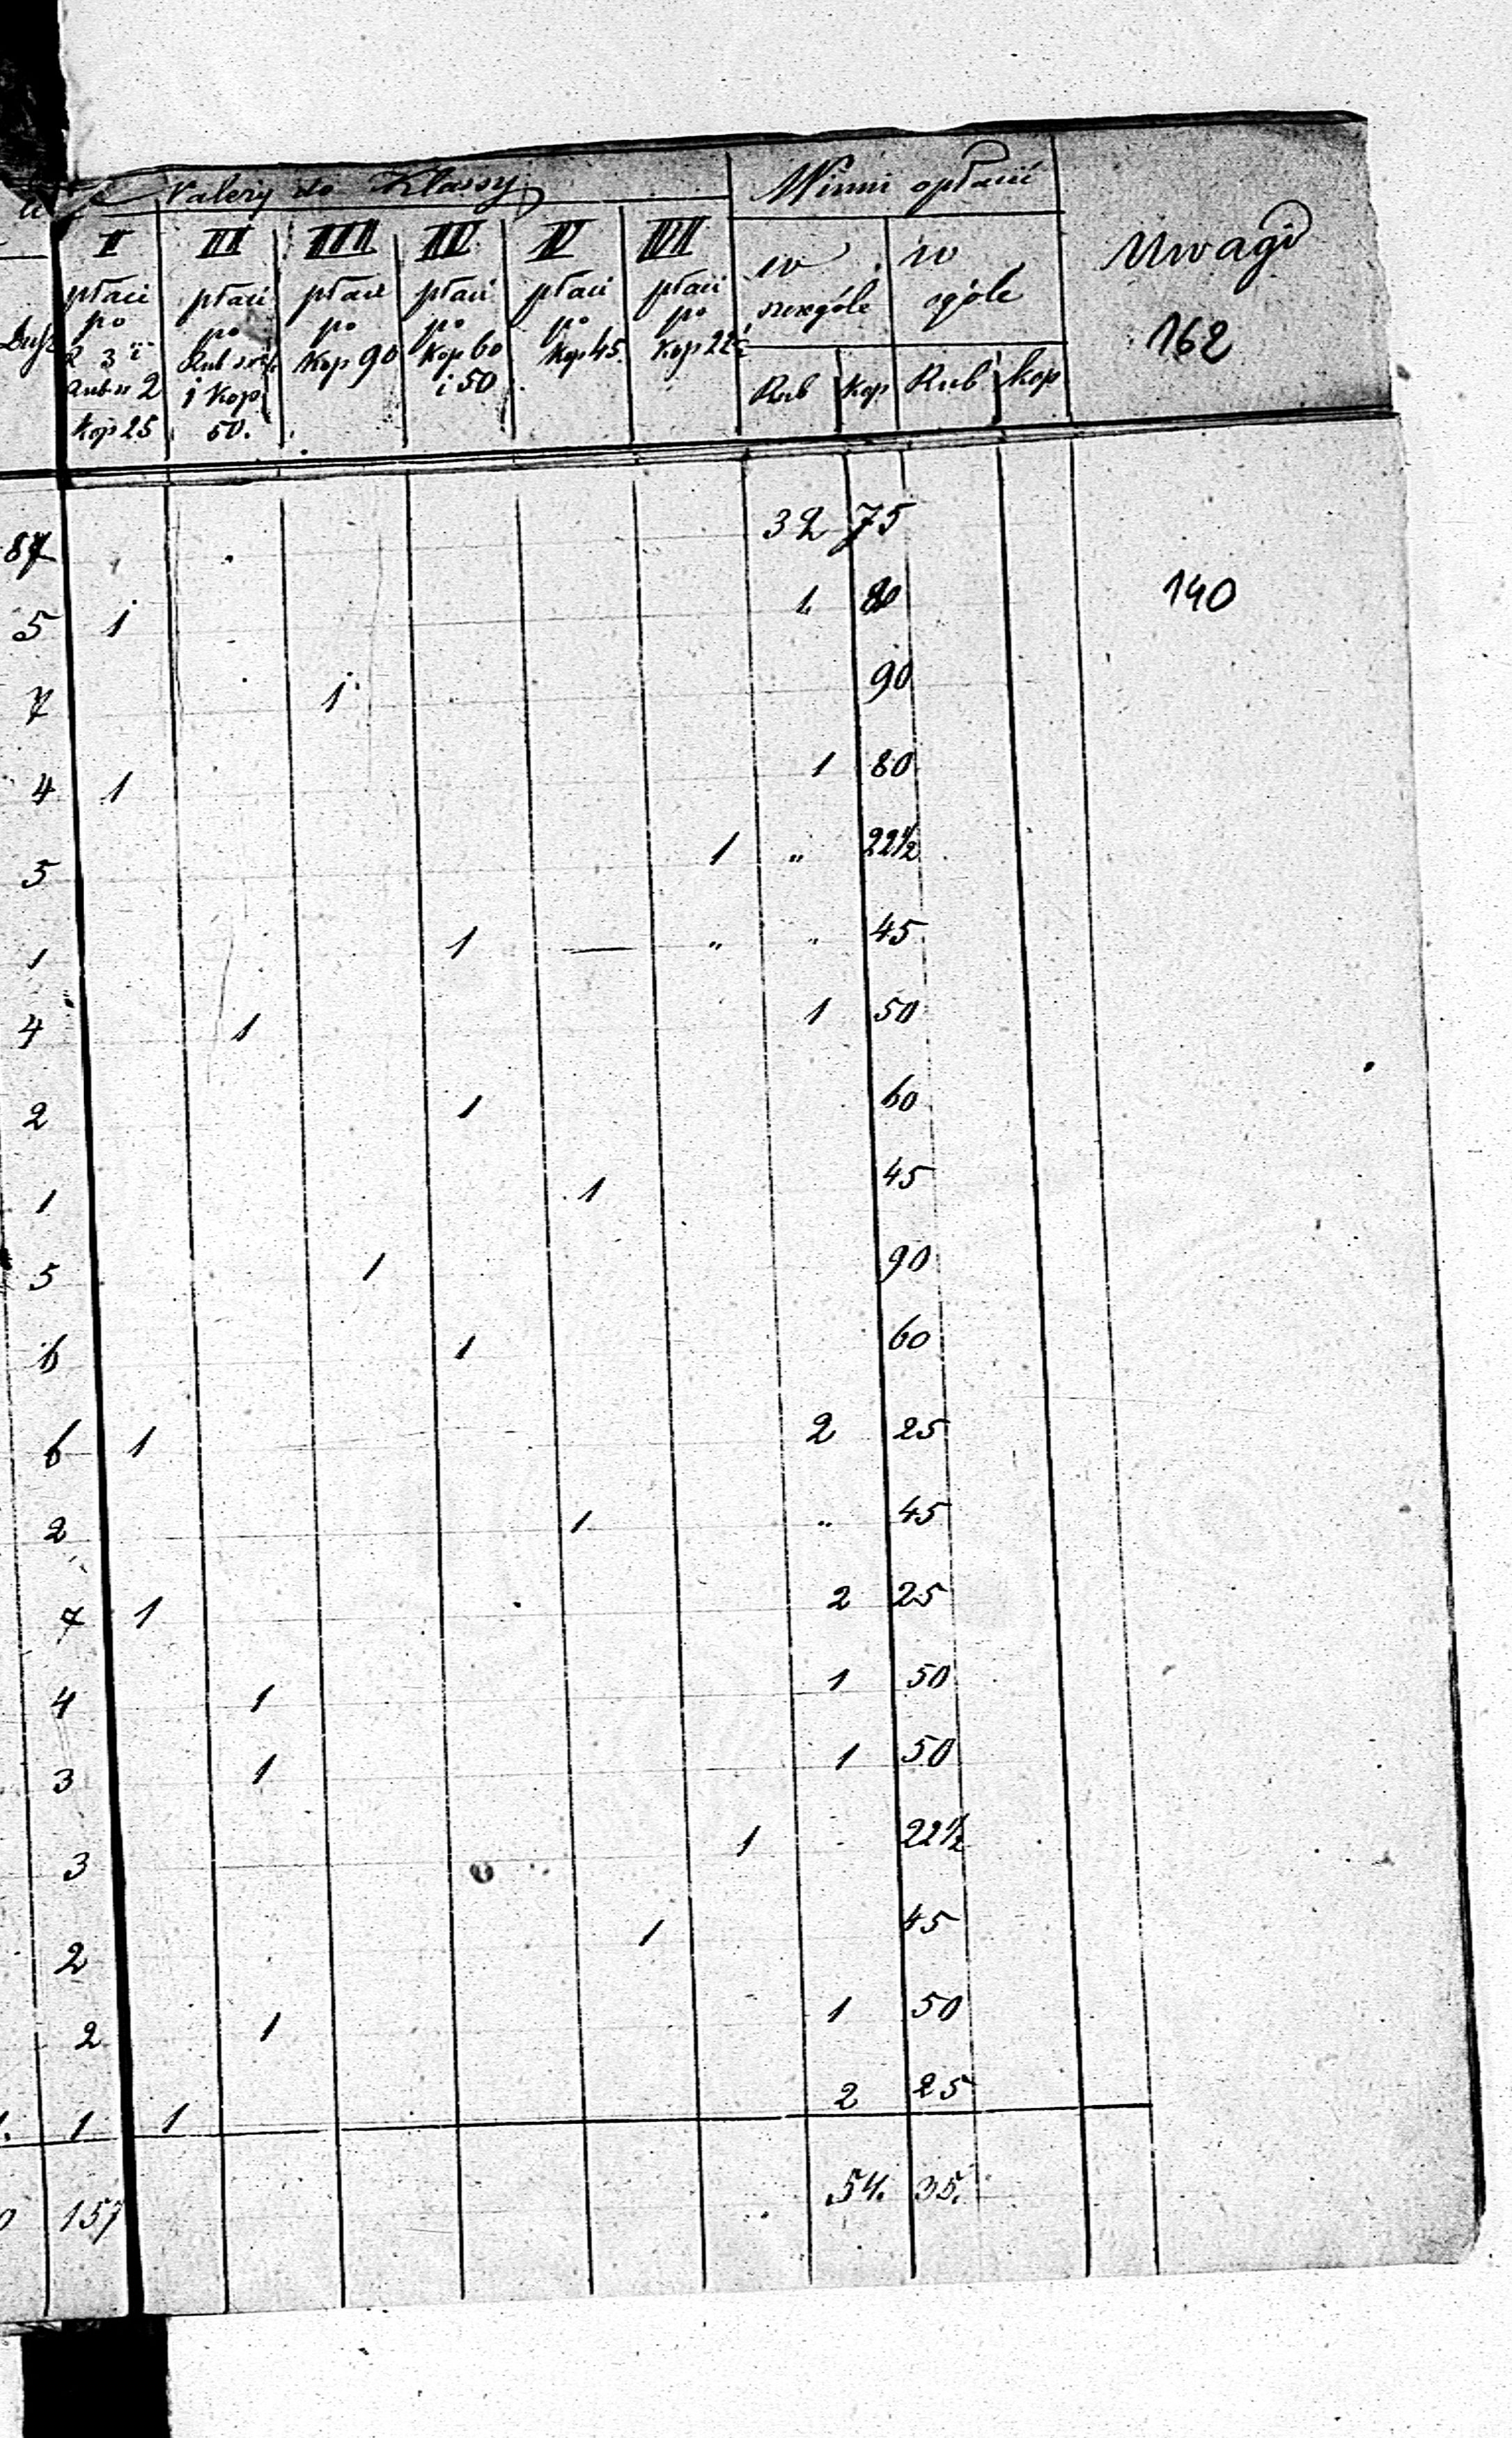 Należy do Klassy
Winni opłacić
Uwagi
162
I II III IV V VI
w szczególe
w ogóle
Dusz
płaci po R 3 i Rub sr 2 kop 25
płaci po Rub sr 1 i kop 50.
płaci po Kop 90
płaci po Kop 60 i 50
płaci po Kop 45.
płaci po Kop 22½
Rub Kop Rub Kop
87 32 75
5 1 1 80
140
7 1 90
4 1 1 80
5 1 " 22½
1 1 — " " 45
4 1 1 50
2 1 60
1 1 45
5 1 90
6 1 60
6 1 2 25
2 1 " 45
7 1 2 25
4 1 1 50
3 1 1 50
3 1 22½
2 1 45
2 1 1 50
1 1 2 25
157 54. 35.